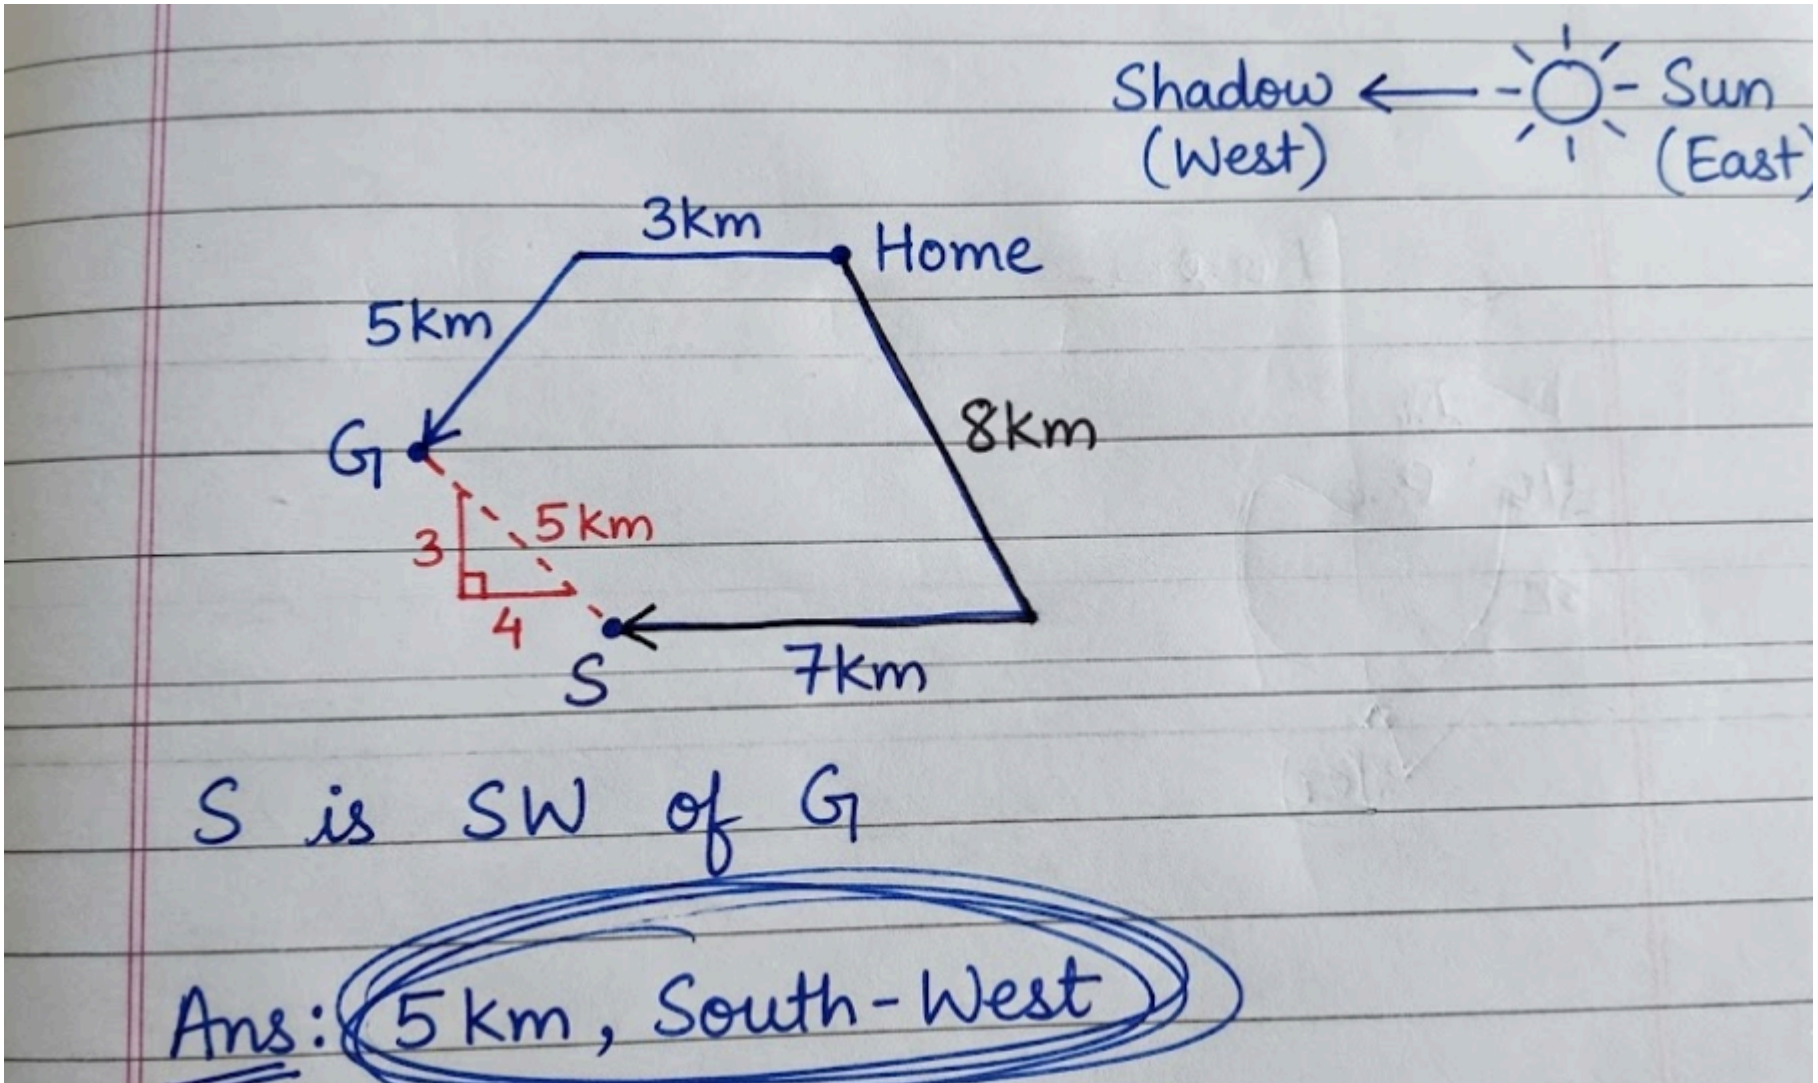 Shadow ← Sun
(West) (East)
3km
Home
5km
8km
G
5km
3
4
S
7km
S is SW of G
Ans: 5km, South-West